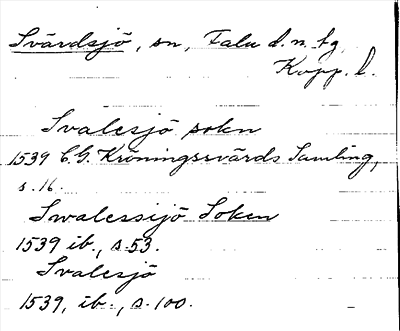 Svärdsjö, sn, Falu d. n. tg,
Kopp. l.
Svalesjö sokn
1539 C.G. Kröningssvärds Samling,
s. 16.
Swalessijö Soken
1539 ib., s. 53.
Svalesjö
1539, ib., s. 100.